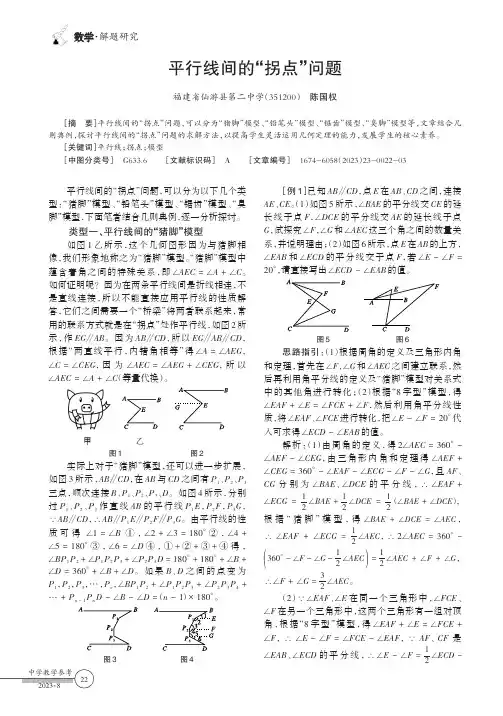 数学·解题研究
平行线间的“拐点”问题
福建省仙游县第二中学(351200) 陈国权
[摘 要]平行线间的“拐点”问题,可以分为“猪脚”模型、“铅笔头”模型、“锯齿”模型、“臭脚”模型等,文章结合几
则典例,探讨平行线间的“拐点”问题的求解方法,以提高学生灵活运用几何定理的能力,发展学生的核心素养。
[关键词]平行线;拐点;模型
[中图分类号] G633.6 [文献标识码] A [文章编号] 1674-6058(2023)23-0022-03
平行线间的“拐点”问题,可以分为以下几个类
型:“猪脚”模型、“铅笔头”模型、“锯齿”模型、“臭
脚”模型,下面笔者结合几则典例,逐一分析探讨。
类型一、平行线间的“猪脚”模型
如图1乙所示,这个几何图形因为与猪脚相
像,我们形象地称之为“猪脚”模型。“猪脚”模型中
蕴含着角之间的特殊关系,即∠AEC = ∠A + ∠C。
如何证明呢？因为在两条平行线间是折线相连,不
是直线连接,所以不能直接应用平行线的性质解
答,它们之间需要一个“桥梁”将两者联系起来,常
用的联系方式就是在“拐点”处作平行线,如图2所
示,作EG//AB。因为AB//CD,所以EG//AB//CD,
根据“两直线平行,内错角相等”得∠A = ∠AEG,
∠C = ∠CEG,因为∠AEC = ∠AEG + ∠CEG,所以
∠AEC = ∠A + ∠C(等量代换)。
甲 乙
图1 图2
A B
E
C D
A B
G E
C D
实际上对于“猪脚”模型,还可以进一步扩展,
如图3所示,AB//CD,在AB与CD之间有P₁、P₂、P₃
三点,顺次连接B、P₁、P₂、P₃、D。如图4所示,分别
过P₁、P₂、P₃作直线AB的平行线P₁E、P₂F、P₃G,
∵AB//CD,∴AB//P₁E//P₂F//P₃G。由平行线的性
质可得∠1 = ∠B ①,∠2 + ∠3 = 180° ②,∠4 +
∠5 = 180° ③,∠6 = ∠D ④,① + ② + ③ + ④得,
∠BP₁P₂ + ∠P₁P₂P₃ + ∠P₂P₃D = 180° + 180° + ∠B +
∠D = 360° + ∠B + ∠D。如果B、D之间的点变为
P₁,P₂,P₃,…,Pₙ,∠BP₁P₂ + ∠P₁P₂P₃ + ∠P₂P₃P₄ +
… + Pₙ₋₁PₙD - ∠B - ∠D = (n - 1) × 180°。
图3 图4
[例1]已知AB//CD,点E在AB、CD之间,连接
AE、CE。(1)如图5所示,∠BAE的平分线交CE的延
长线于点F,∠DCE的平分线交AE的延长线于点
G,试探究∠F、∠G和∠AEC这三个角之间的数量关
系,并说明理由;(2)如图6所示,点E在AB的上方,
∠EAB和∠ECD的平分线交于点F,若∠E - ∠F =
20°,请直接写出∠ECD - ∠EAB的值。
图5 图6
思路指引:(1)根据周角的定义及三角形内角
和定理,首先在∠F、∠G和∠AEC之间建立联系,然
后再利用角平分线的定义及“猪脚”模型对关系式
中的其他角进行转化;(2)根据“8字型”模型,得
∠EAF + ∠E = ∠FCE + ∠F,然后利用角平分线性
质,将∠EAF、∠FCE进行转化,把∠E - ∠F = 20°代
入可求得∠ECD - ∠EAB的值。
解析:(1)由周角的定义,得2∠AEC = 360° -
∠AEF - ∠CEG,由三角形内角和定理得∠AEF +
∠CEG = 360° - ∠EAF - ∠ECG - ∠F - ∠G,且AF、
CG分别为∠BAE、∠DCE的平分线,∴∠EAF +
∠ECG = 1/2∠BAE + 1/2∠DCE = 1/2(∠BAE + ∠DCE),
根据“猪脚”模型,得∠BAE + ∠DCE = ∠AEC,
∴∠EAF + ∠ECG = 1/2∠AEC,∴2∠AEC = 360° -
(360° - ∠F - ∠G - 1/2∠AEC) = 1/2∠AEC + ∠F + ∠G,
∴∠F + ∠G = 3/2∠AEC。
(2)∵∠EAF、∠E在同一个三角形中,∠FCE、
∠F在另一个三角形中,这两个三角形有一组对顶
角,根据“8字型”模型,得∠EAF + ∠E = ∠FCE +
∠F,∴∠E - ∠F = ∠FCE - ∠EAF,∵AF、CF是
∠EAB、∠ECD的平分线,∴∠E - ∠F = 1/2∠ECD -
中学教学参考
2023·8
22